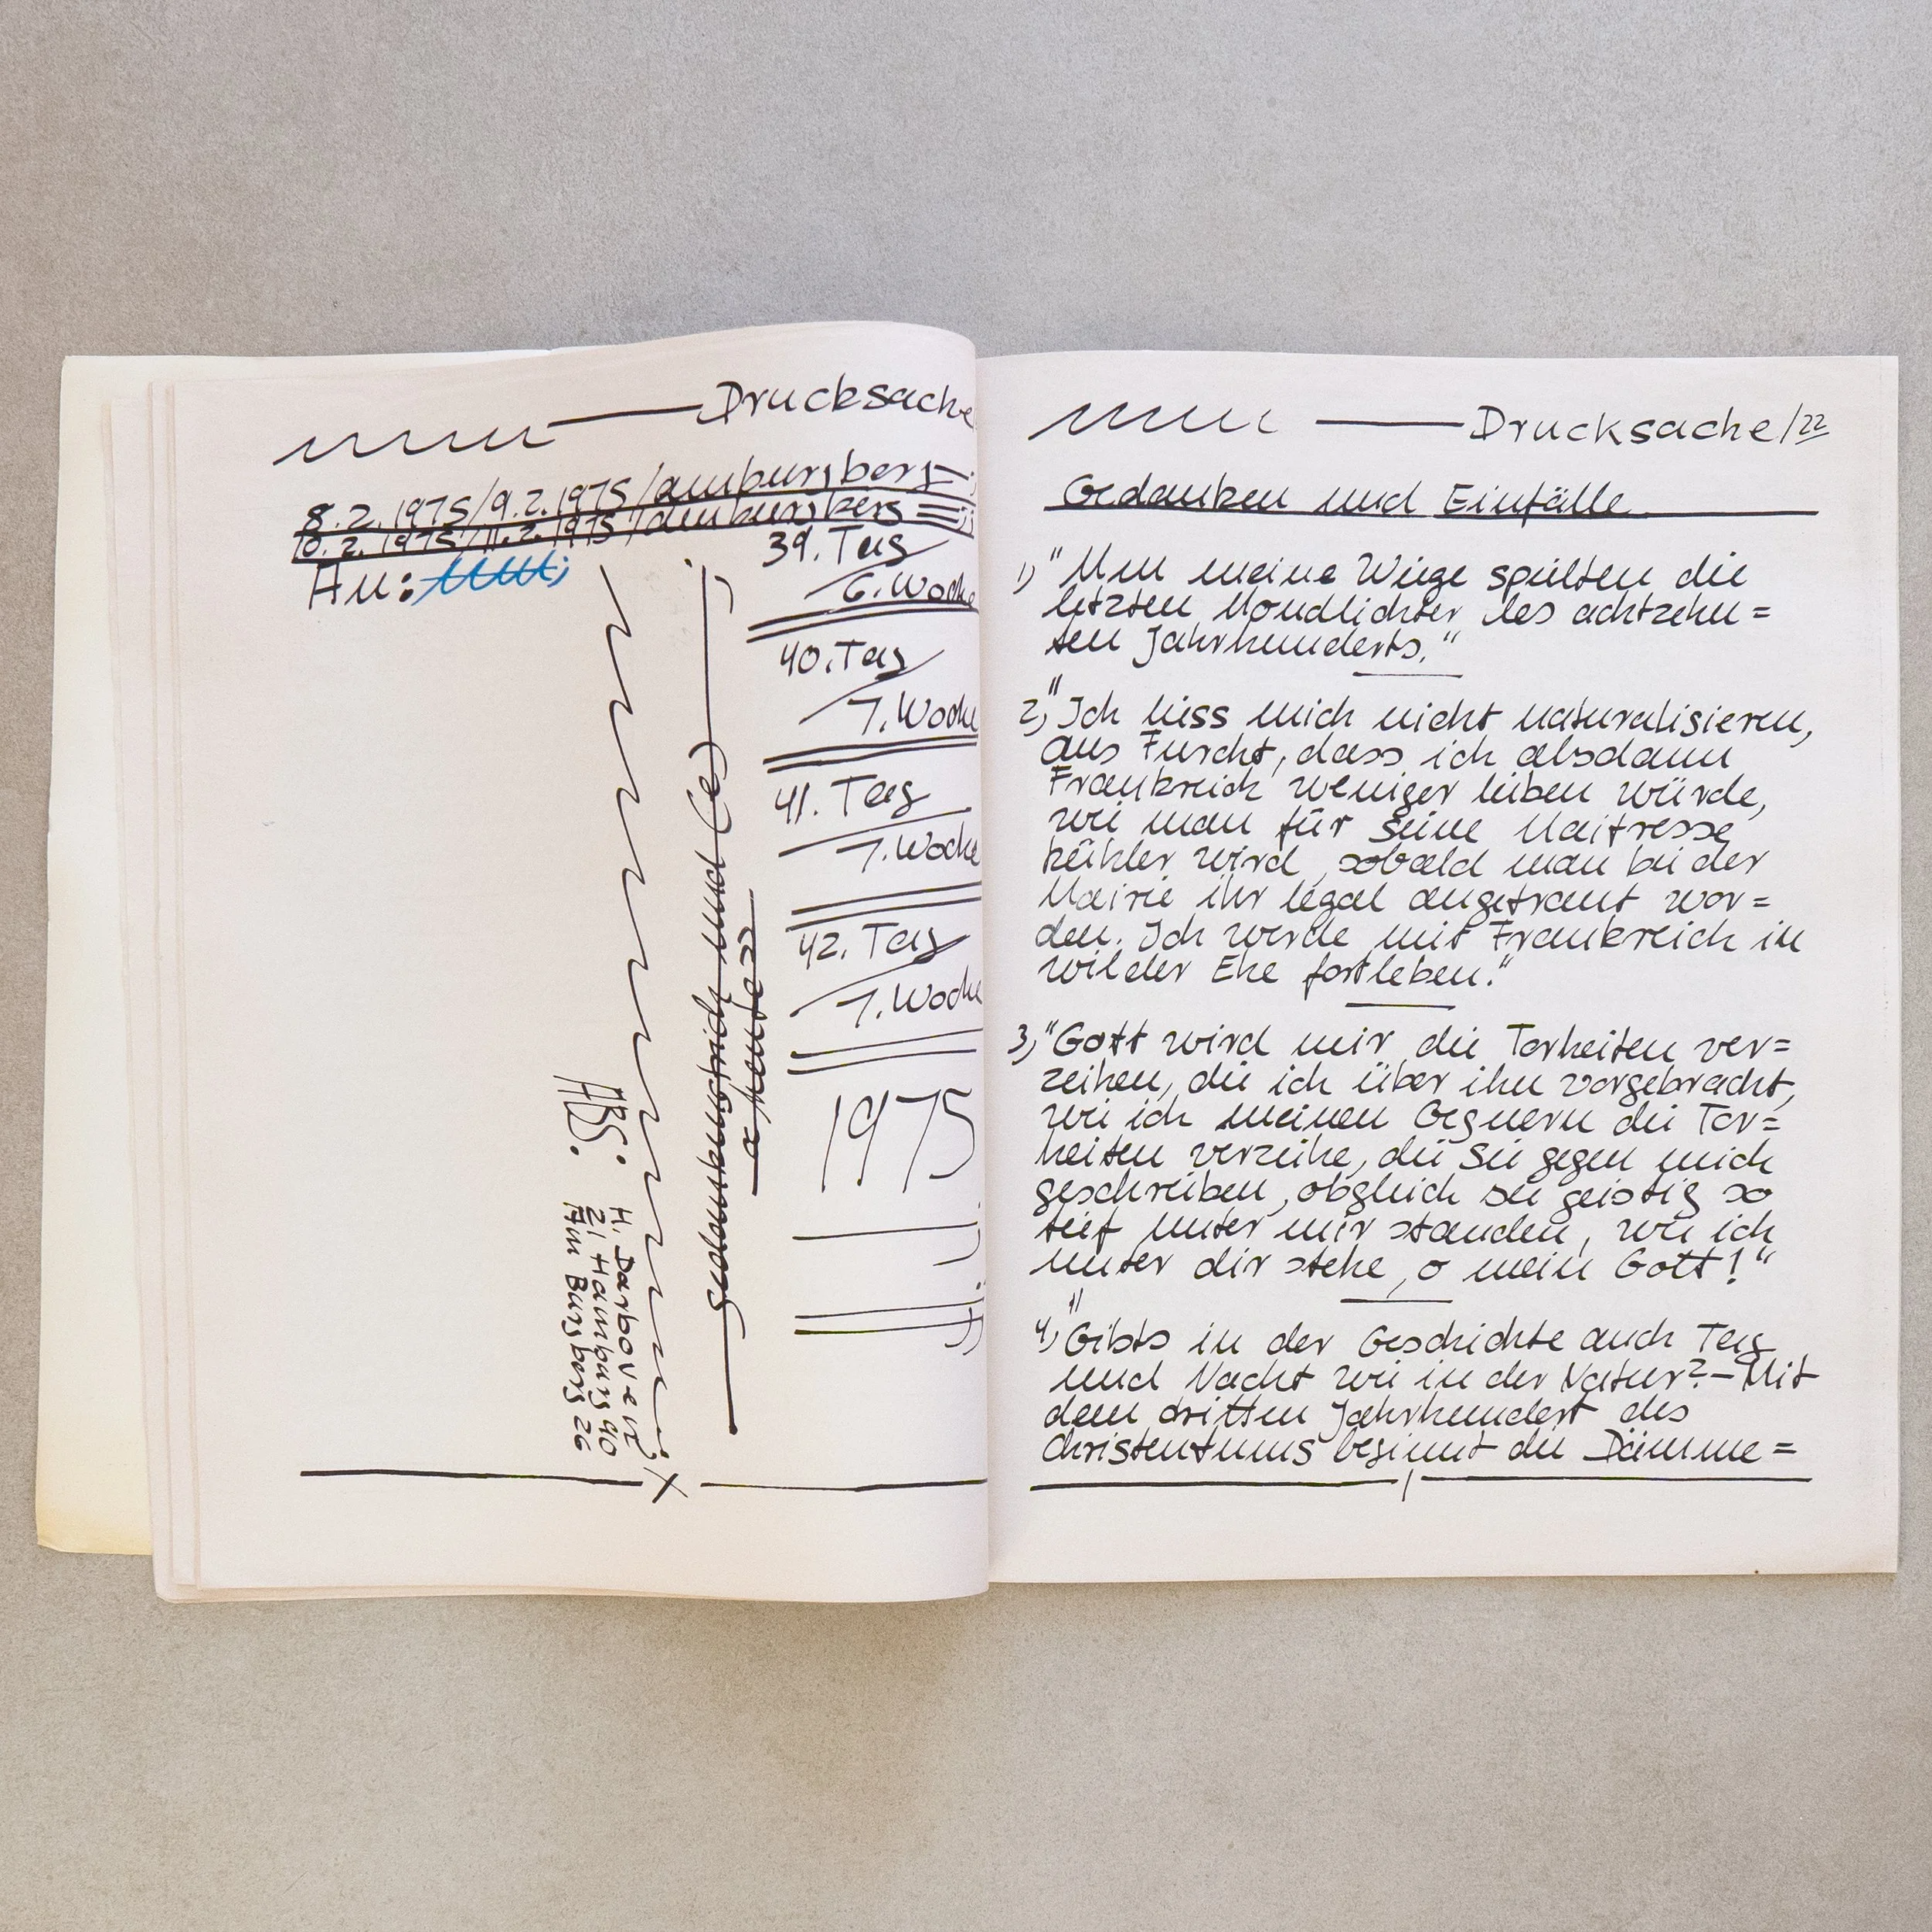 Drucksache
8.2.1975/9.2.1975/amburgberg
10.2.1975/11.2.1975/amburgberg
An:
39. Tag
6. Woche
40. Tag
7. Woche
41. Tag
7. Woche
42. Tag
7. Woche
1975
gedankenstrich und (e)
a heute
ABS.:
H. Darboven
21 Hamburg 90
Am Burgberg 26
Drucksache/22
Gedanken und Einfälle
1) "Um meine Wiege spielten die
letzten Mondlichter des achtzehn=
ten Jahrhunderts."
2) "Ich liess mich nicht naturalisieren,
aus Furcht, dass ich alsdann
Frankreich weniger lieben würde,
wie man für seine Maitresse
kühler wird, sobald man bei der
Mairie ihr legal angetraut wor=
den. Ich werde mit Frankreich in
wilder Ehe fortleben."
3) "Gott wird mir die Torheiten ver=
zeihen, die ich über ihn vorgebracht,
wie ich meinen Gegnern die Tor=
heiten verzeihe, die sie gegen mich
geschrieben, obgleich sie geistig so
tief unter mir standen, wie ich
unter dir stehe, o mein Gott!"
4) "Gibts in der Geschichte auch Tag
und Nacht wie in der Natur? – Mit
dem dritten Jahrhundert des
Christentums beginnt die Dämme=